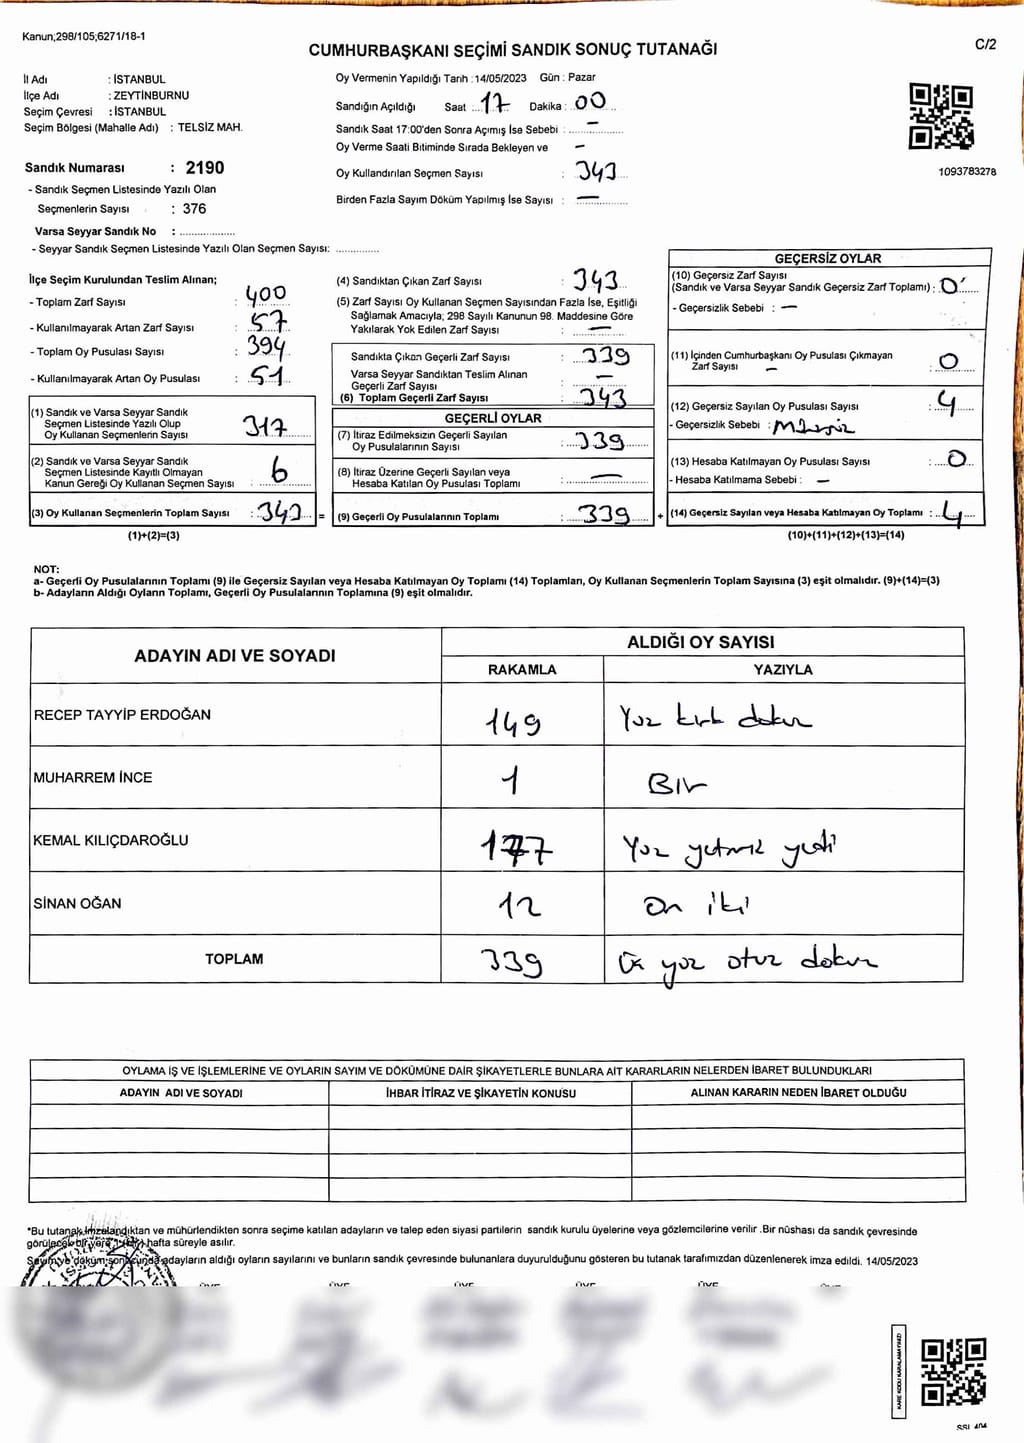 Kanun;298/105;6271/18-1
C/2
CUMHURBAŞKANI SEÇİMİ SANDIK SONUÇ TUTANAĞI
İl Adı : İSTANBUL
İlçe Adı : ZEYTİNBURNU
Seçim Çevresi : İSTANBUL
Seçim Bölgesi (Mahalle Adı) : TELSİZ MAH.
Sandık Numarası : 2190
- Sandık Seçmen Listesinde Yazılı Olan
Seçmenlerin Sayısı : 376
Varsa Seyyar Sandık No : ...................
- Seyyar Sandık Seçmen Listesinde Yazılı Olan Seçmen Sayısı: ..............
Oy Vermenin Yapıldığı Tarih : 14/05/2023 Gün : Pazar
Sandığın Açıldığı Saat : 17 Dakika : 00
Sandık Saat 17:00'den Sonra Açımış İse Sebebi : —
Oy Verme Saati Bitiminde Sırada Bekleyen ve —
Oy Kullandırılan Seçmen Sayısı : 343
Birden Fazla Sayım Döküm Yapılmış İse Sayısı : —
1093783278
İlçe Seçim Kurulundan Teslim Alınan;
- Toplam Zarf Sayısı : 400
- Kullanılmayarak Artan Zarf Sayısı : 57
- Toplam Oy Pusulası Sayısı : 394
- Kullanılmayarak Artan Oy Pusulası : 51
(1) Sandık ve Varsa Seyyar Sandık
Seçmen Listesinde Yazılı Olup
Oy Kullanan Seçmenlerin Sayısı : 317
(2) Sandık ve Varsa Seyyar Sandık
Seçmen Listesinde Kayıtlı Olmayan
Kanun Gereği Oy Kullanan Seçmen Sayısı : 6
(3) Oy Kullanan Seçmenlerin Toplam Sayısı : 343 =
(1)+(2)=(3)
(4) Sandıktan Çıkan Zarf Sayısı : 343
(5) Zarf Sayısı Oy Kullanan Seçmen Sayısından Fazla İse, Eşitliği
Sağlamak Amacıyla; 298 Sayılı Kanunun 98. Maddesine Göre
Yakılarak Yok Edilen Zarf Sayısı : —
Sandıkta Çıkan Geçerli Zarf Sayısı : 339
Varsa Seyyar Sandıktan Teslim Alınan
Geçerli Zarf Sayısı : —
(6) Toplam Geçerli Zarf Sayısı : 343
GEÇERLİ OYLAR
(7) İtiraz Edilmeksizin Geçerli Sayılan
Oy Pusulalarının Sayısı : 339
(8) İtiraz Üzerine Geçerli Sayılan veya
Hesaba Katılan Oy Pusulası Toplamı : —
(9) Geçerli Oy Pusulalarının Toplamı : 339 +
GEÇERSİZ OYLAR
(10) Geçersiz Zarf Sayısı
(Sandık ve Varsa Seyyar Sandık Geçersiz Zarf Toplamı) : 0
- Geçersizlik Sebebi : —
(11) İçinden Cumhurbaşkanı Oy Pusulası Çıkmayan
Zarf Sayısı — : 0
(12) Geçersiz Sayılan Oy Pusulası Sayısı : 4
- Geçersizlik Sebebi :
(13) Hesaba Katılmayan Oy Pusulası Sayısı : 0
- Hesaba Katılmama Sebebi : —
(14) Geçersiz Sayılan veya Hesaba Katılmayan Oy Toplamı : 4
(10)+(11)+(12)+(13)=(14)
NOT:
a- Geçerli Oy Pusulalarının Toplamı (9) ile Geçersiz Sayılan veya Hesaba Katılmayan Oy Toplamı (14) Toplamları, Oy Kullanan Seçmenlerin Toplam Sayısına (3) eşit olmalıdır. (9)+(14)=(3)
b- Adayların Aldığı Oyların Toplamı, Geçerli Oy Pusulalarının Toplamına (9) eşit olmalıdır.
ADAYIN ADI VE SOYADI ALDIĞI OY SAYISI
RAKAMLA YAZIYLA
RECEP TAYYİP ERDOĞAN 149 Yüz kırk dokuz
MUHARREM İNCE 1 Bir
KEMAL KILIÇDAROĞLU 177 Yüz yetmiş yedi
SİNAN OĞAN 12 On iki
TOPLAM 339 Üç yüz otuz dokuz
OYLAMA İŞ VE İŞLEMLERİNE VE OYLARIN SAYIM VE DÖKÜMÜNE DAİR ŞİKAYETLERLE BUNLARA AİT KARARLARIN NELERDEN İBARET BULUNDUKLARI
ADAYIN ADI VE SOYADI İHBAR İTİRAZ VE ŞİKAYETİN KONUSU ALINAN KARARIN NEDEN İBARET OLDUĞU
*Bu tutanak imzalandıktan ve mühürlendikten sonra seçime katılan adayların ve talep eden siyasi partilerin sandık kurulu üyelerine veya gözlemcilerine verilir .Bir nüshası da sandık çevresinde
görülecek bir yere 1 (bir) hafta süreyle asılır.
Sayım ve döküm sonucunda adayların aldığı oyların sayılarını ve bunların sandık çevresinde bulunanlara duyurulduğunu gösteren bu tutanak tarafımızdan düzenlenerek imza edildi. 14/05/2023
KARE KODU KARALAMAYINIZ!